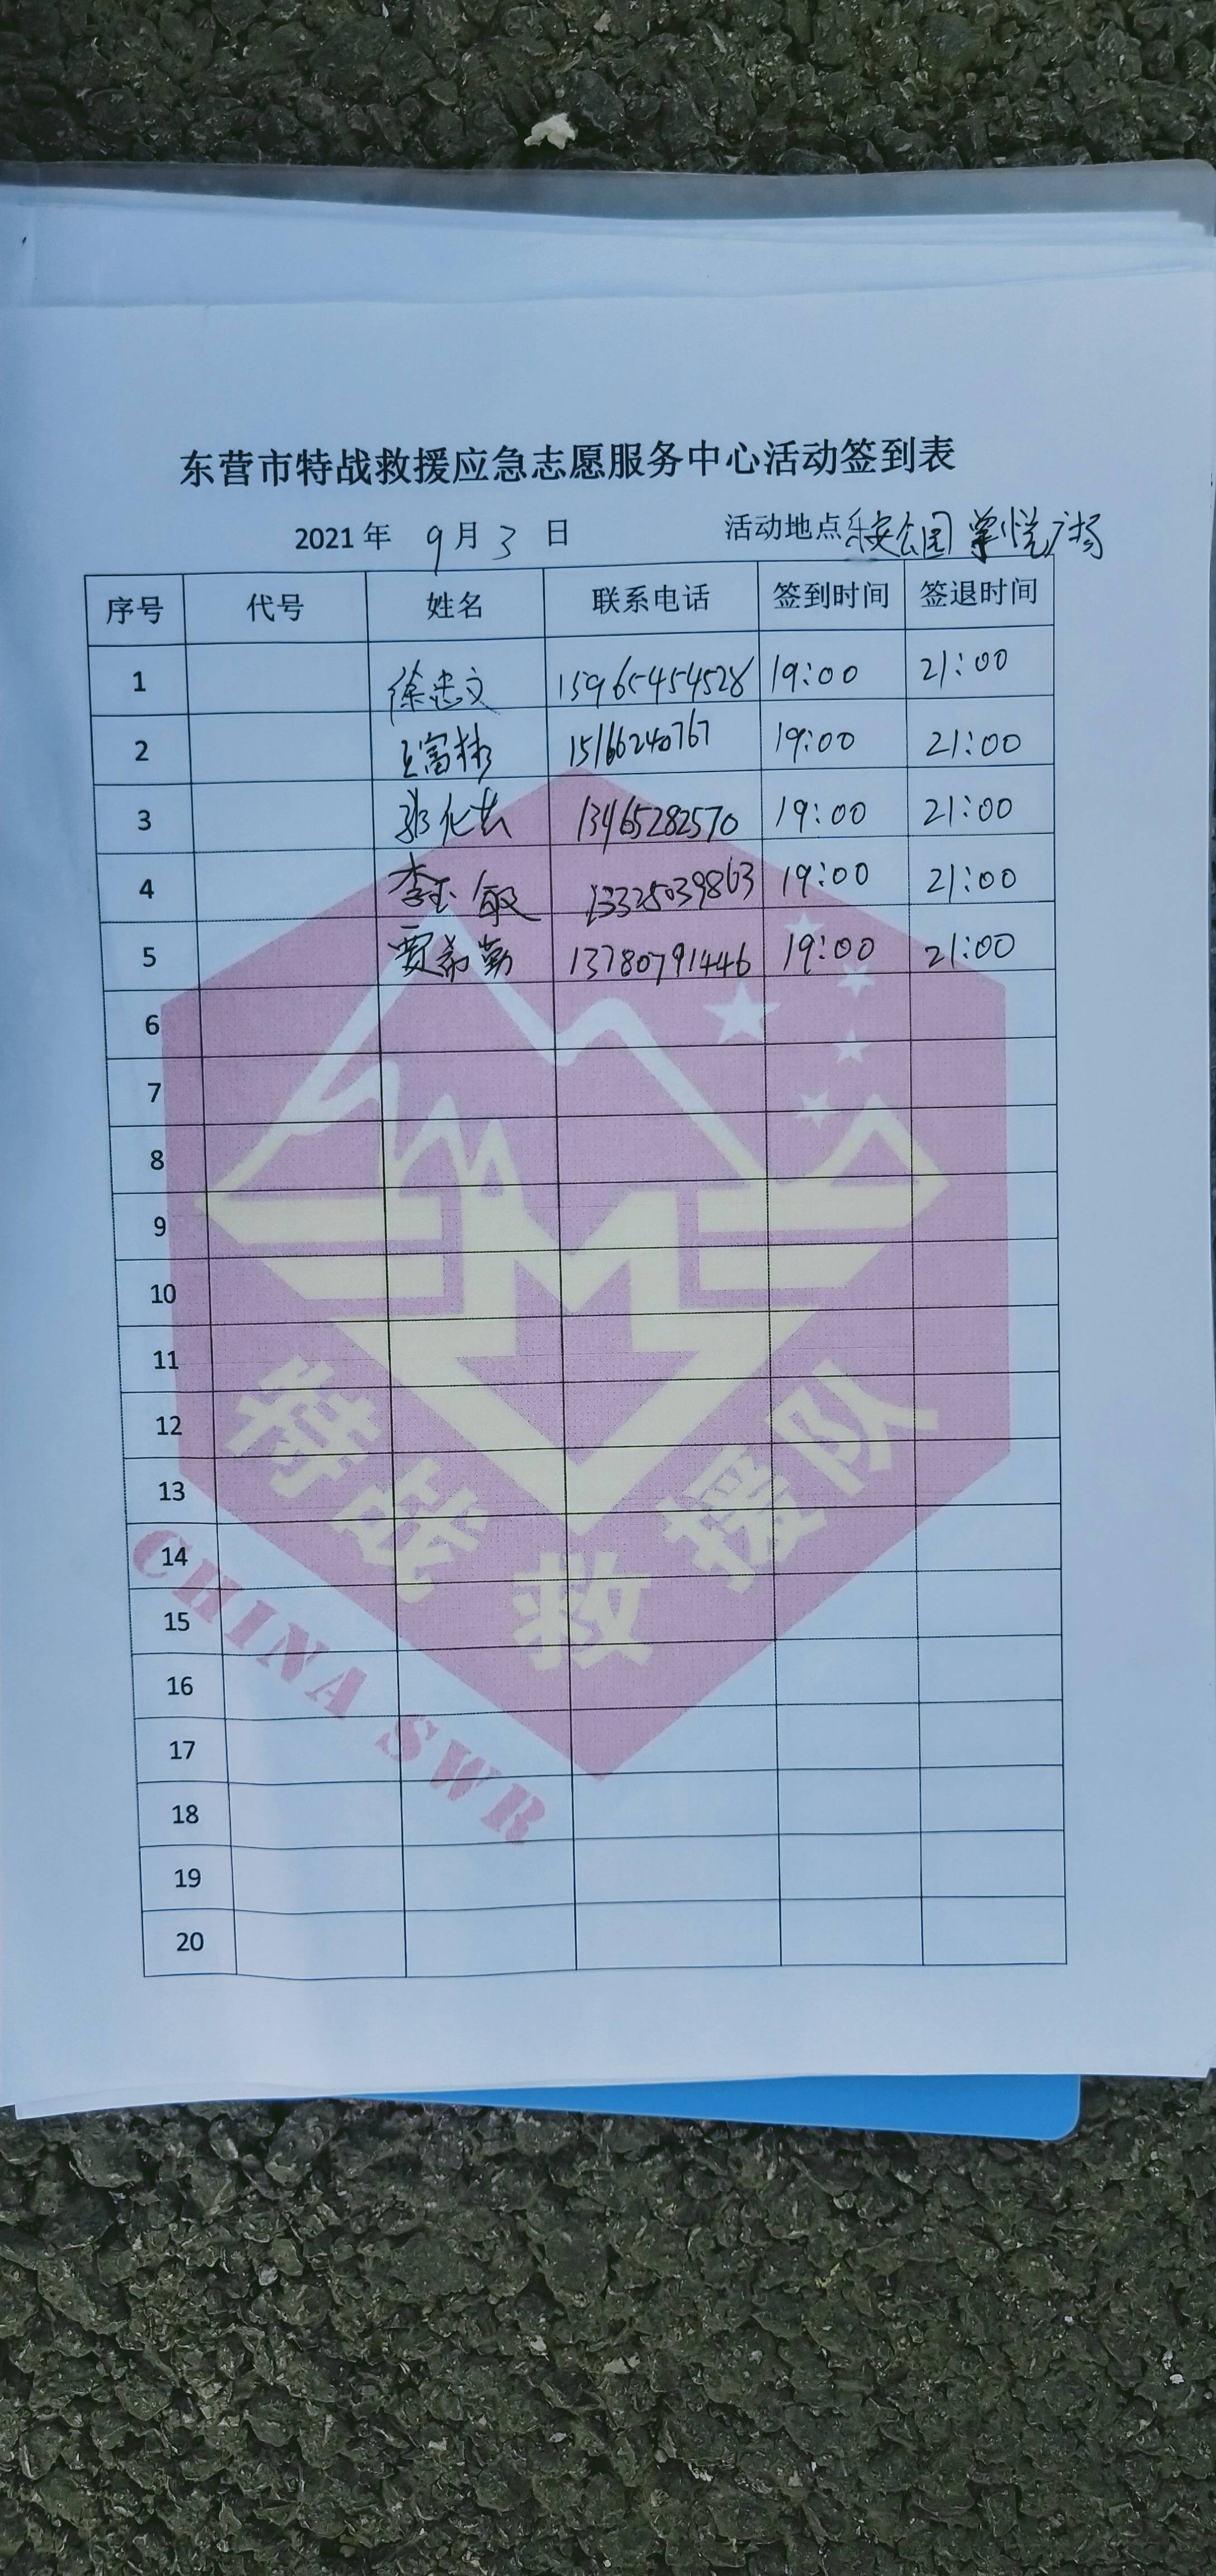 东营市特战救援应急志愿服务中心活动签到表
2021 年 9 月 3 日 活动地点 乐安公园 掌悦广场
序号 代号 姓名 联系电话 签到时间 签退时间
1 徐忠文 15965454528 19:00 21:00
2 王富彬 15166240767 19:00 21:00
3 13465282570 19:00 21:00
4 李玉敏 13325039863 19:00 21:00
5 贾希勤 13780791446 19:00 21:00
6
7
8
9
10
11
12
13
14
15
16
17
18
19
20
特战救援队
CHINA SWR